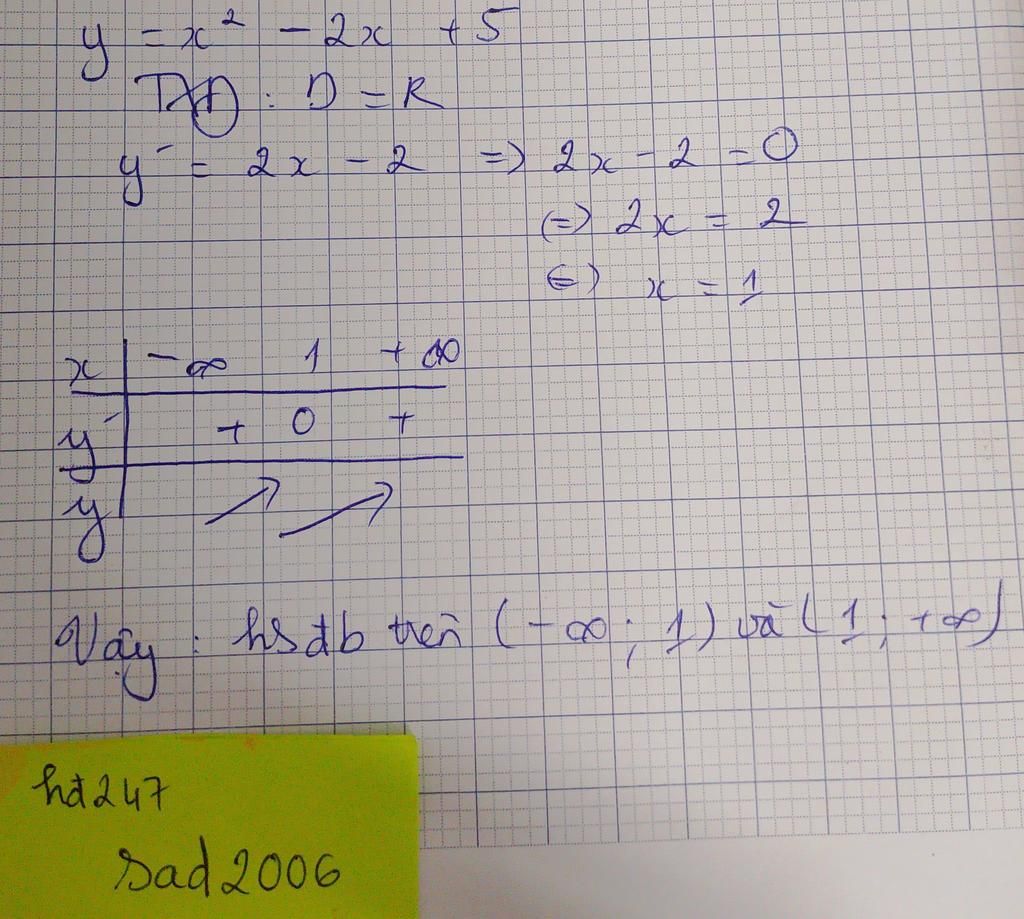 y = x² - 2x + 5
TXĐ : D = R
y' = 2x - 2 => 2x - 2 = 0
(=) 2x = 2
(=) x = 1
x | -∞ 1 + ∞
y' | + 0 +
y | ↗ ↗
Vậy : hsđb trên (-∞ ; 1) và (1 ; +∞)
hđ247
sad2006